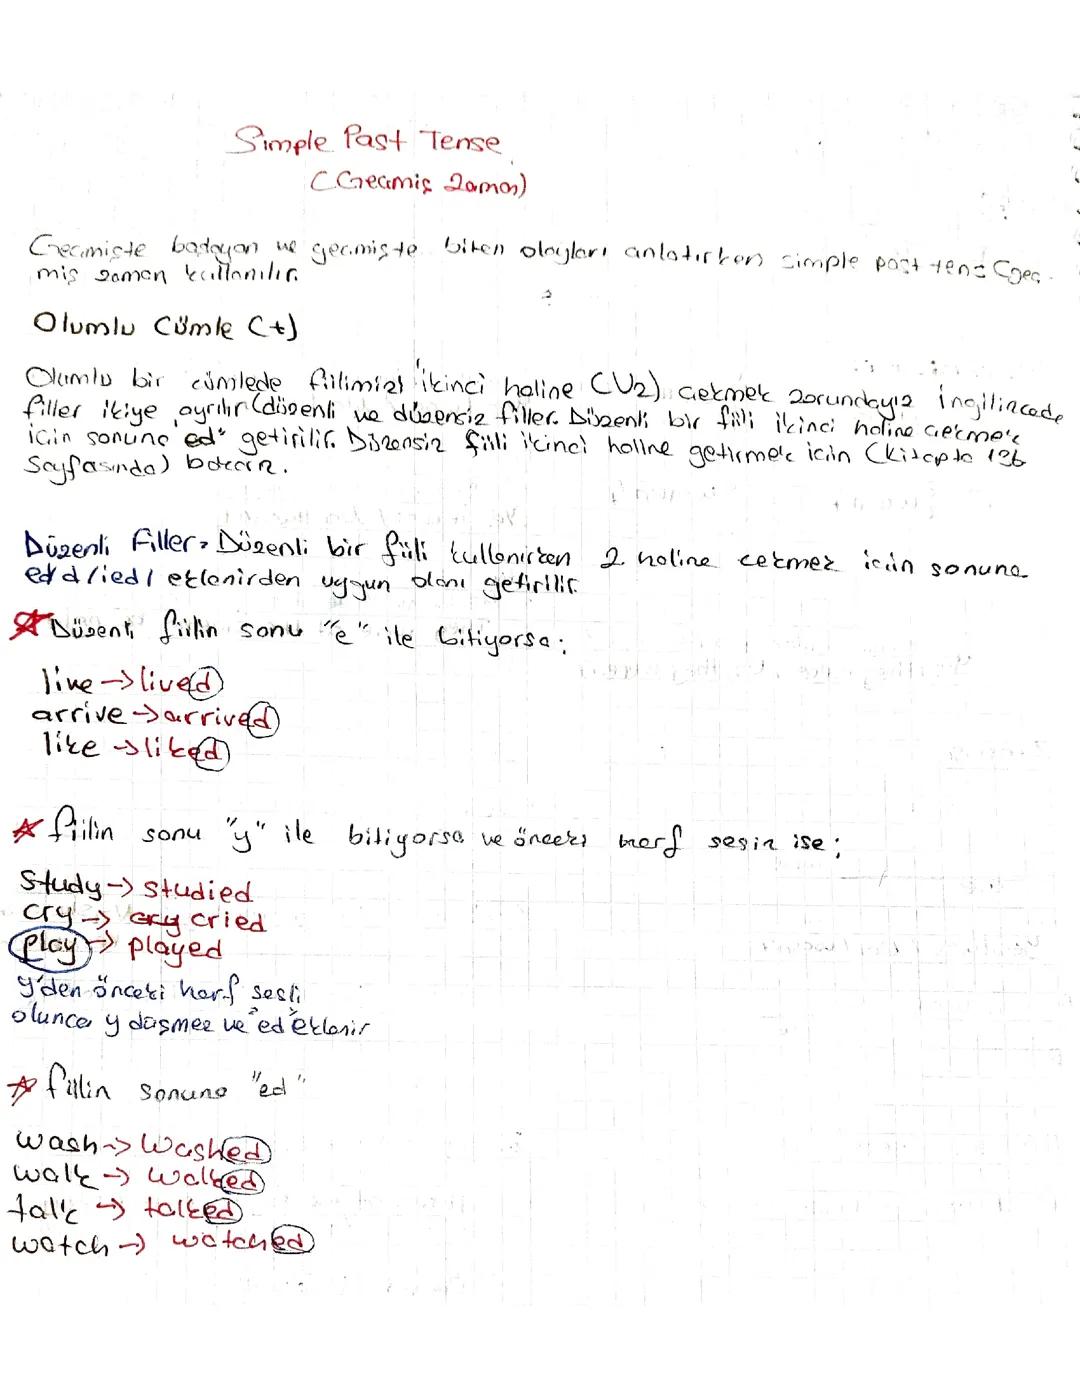 Simple Past Tense
(Geçmiş Zaman)
Geçmişte başlayan ve geçmişte biten olayları anlatırken simple past tens (geç-
miş zaman kullanılır.
Olumlu Cümle (+)
Olumlu bir cümlede fiilimizi ikinci haline (V2) çekmek zorundayız İngilizcede
filler ikiye ayrılır (düzenli ve düzensiz filler. Düzenli bir fiili ikinci haline çekmek
için sonuna ed" getirilir. Düzensiz fiili ikinci haline getirmek için (kitapta 136
Sayfasında) bakarız.
Düzenli Filler: Düzenli bir fiili kullanırken 2 haline çekmek için sonuna
ed/d/ied/ eklenirden uygun olanı getirilir.
Düzenli fiilin sonu "e" ile bitiyorsa;
live → lived
arrive → arrived
like → liked
fiilin sonu "y" ile bitiyorsa ve önceki harf sesiz ise;
Study → studied
cry → cry cried
play → played
y'den önceki harf sesli
olunca y düşmez ve "ed" eklenir
fiilin sonuna "ed"
wash → Washed
walk → walked
talk → talked
watch → watched